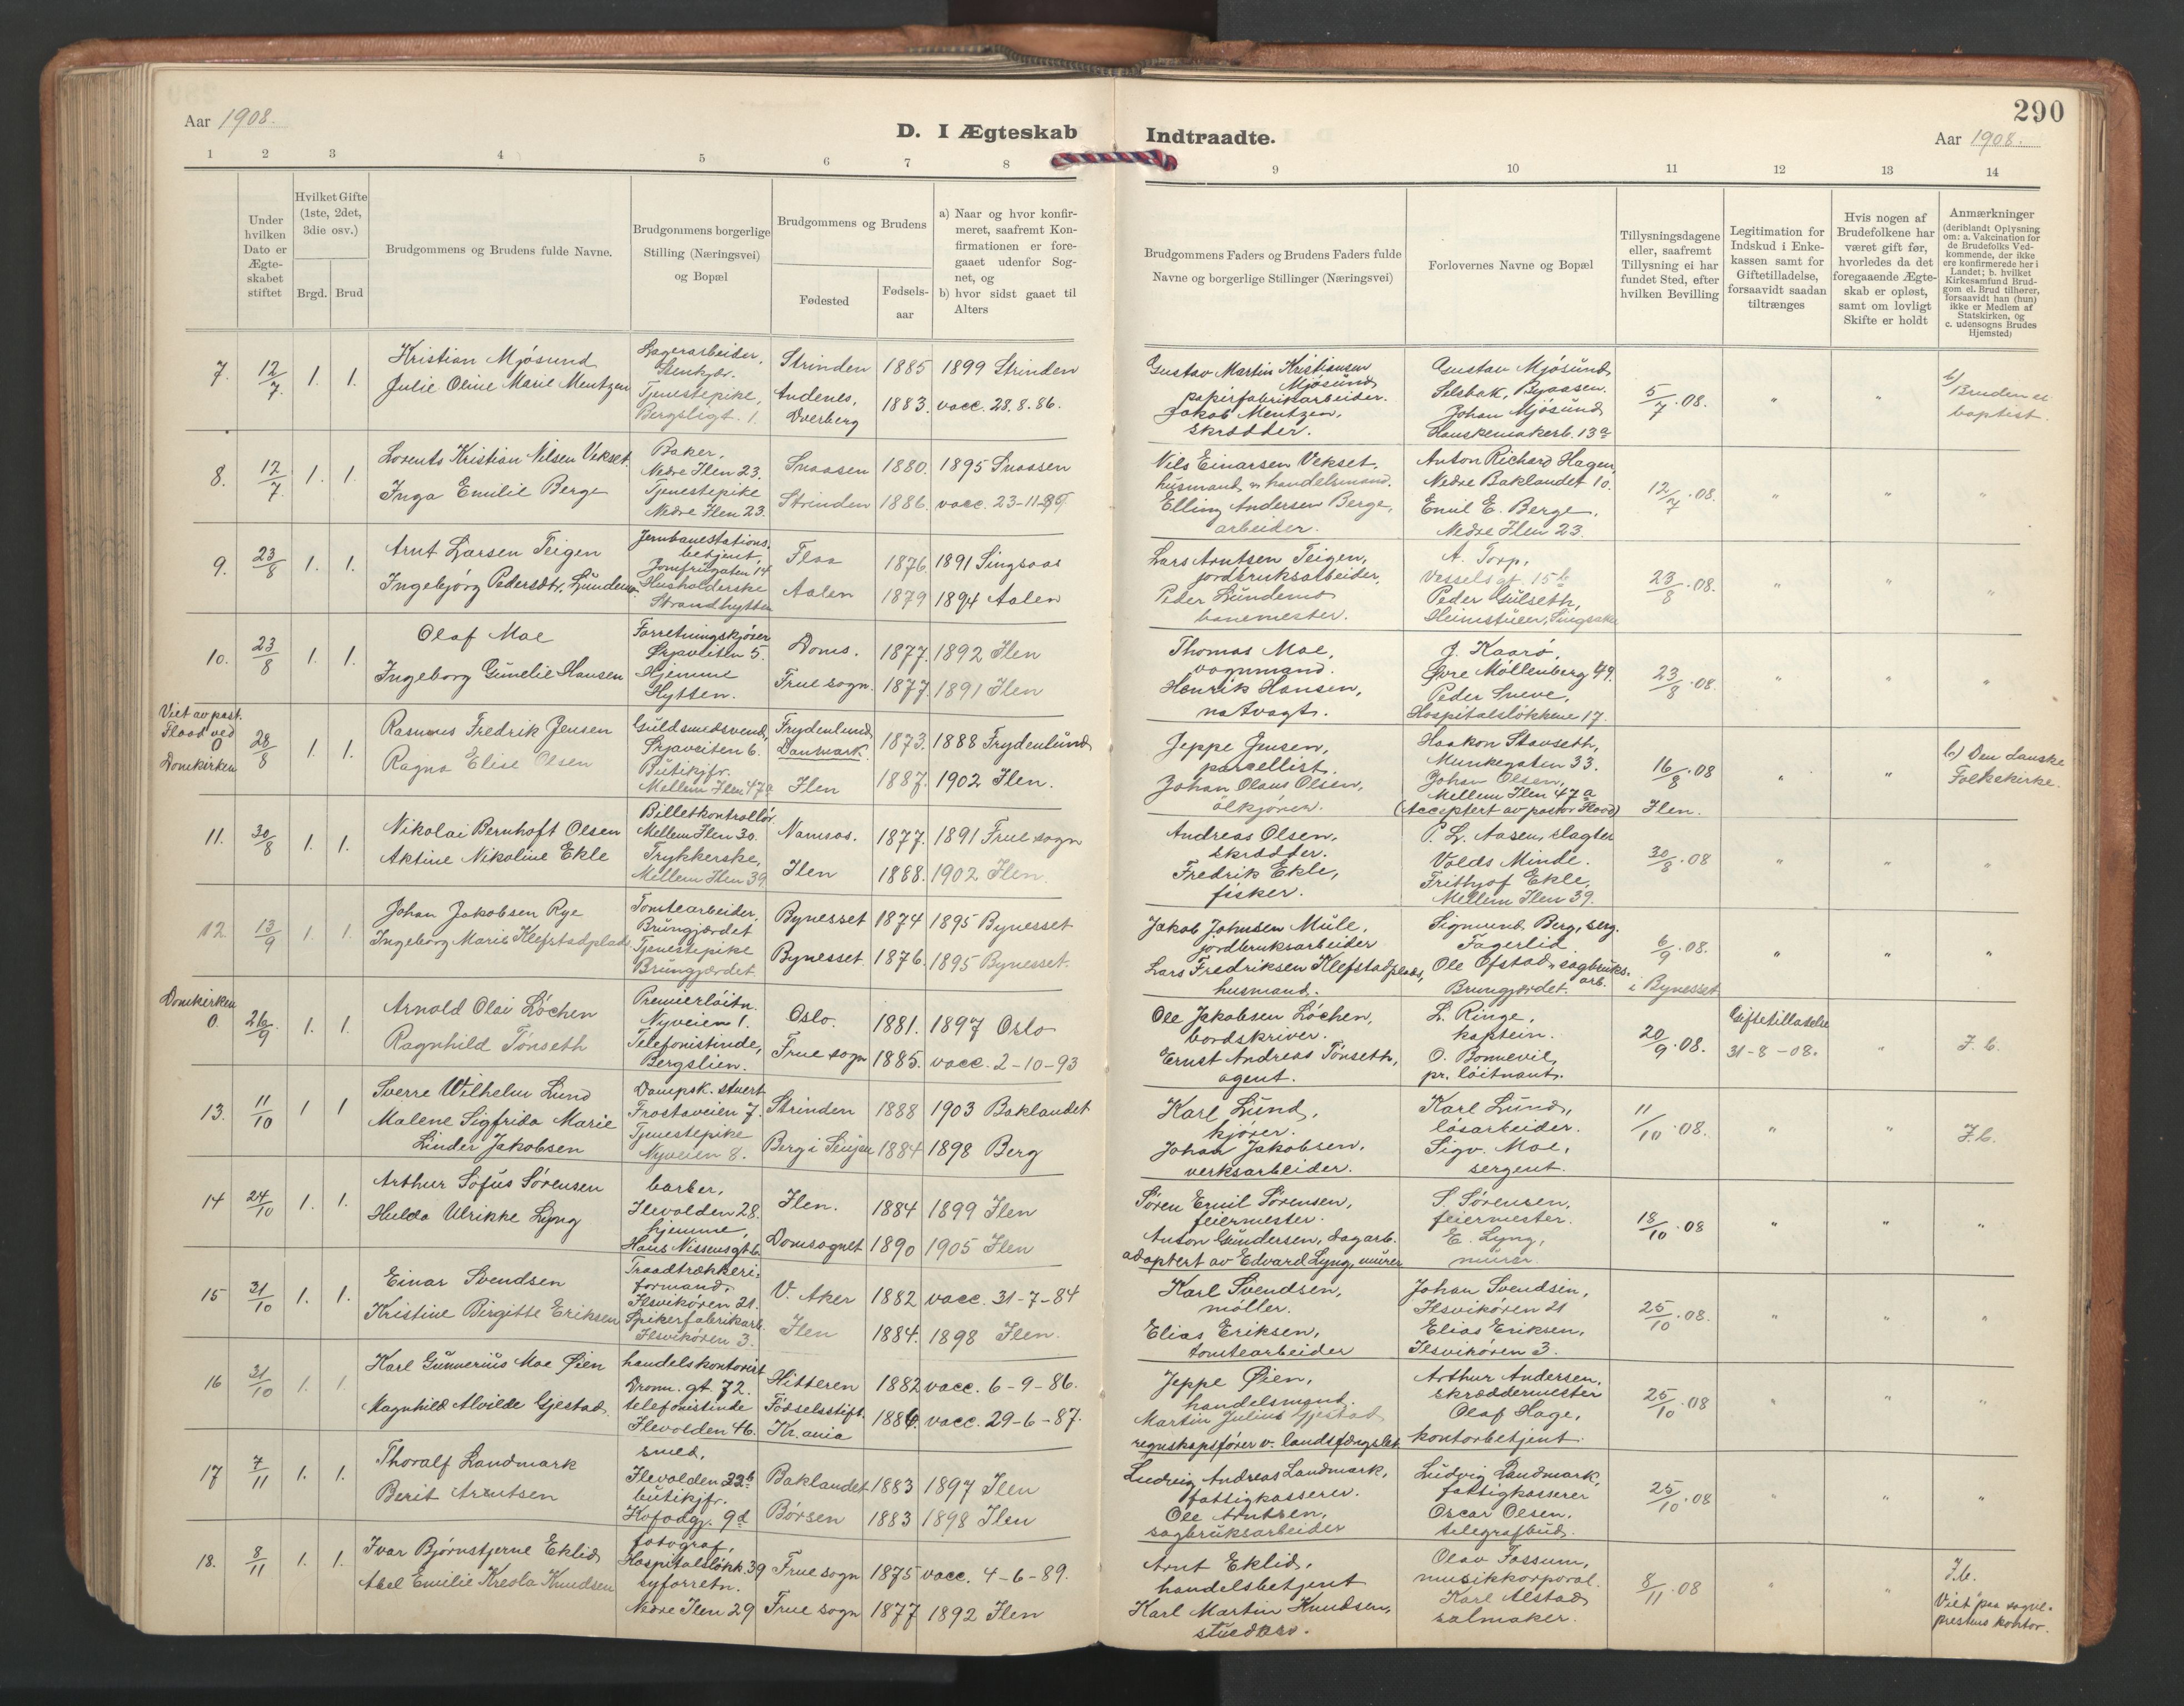 290
Aar 1908.
D. I Ægteskab Indtraadte.
Aar 1908.
1 2 3 4 5 6 7 8 9 10 11 12 13 14
Under hvilken Dato er Ægteskabet stiftet
Hvilket Gifte (1ste, 2det, 3die osv.)
Brgd. Brud
Brudgommens og Brudens fulde Navne.
Brudgommens borgerlige Stilling (Næringsvei) og Bopæl
Brudgommens og Brudens
Fødested
Fødsels-aar
a) Naar og hvor konfirmeret, saafremt Konfirmationen er foregaaet udenfor Sognet, og
b) hvor sidst gaaet til Alters
Brudgommens Faders og Brudens Faders fulde Navne og borgerlige Stillinger (Næringsvei)
Forlovernes Navne og Bopæl
Tillysningsdagene eller, saafremt Tillysning ei har fundet Sted, efter hvilken Bevilling
Legitimation for Indskud i Enkekassen samt for Giftetilladelse, forsaavidt saadan tiltrænges
Hvis nogen af Brudefolkene har været gift før, hvorledes da det foregaaende Ægteskab er opløst, samt om lovligt Skifte er holdt
Anmærkninger (deriblandt Oplysning om: a. Vakcination for de Brudefolks Vedkommende, der ikke ere konfirmerede her i Landet; b. hvilket Kirkesamfund Brudgom el. Brud tilhører, forsaavidt han (hun) ikke er Medlem af Statskirken, og c. udensogns Brudes Hjemsted)
7. 12/7 1. 1. Kristian Mjøsund
Lagerarbeider, Stenkjær.
Strinden 1885 1899 Strinden
Julie Oline Marie Mentzen
Tjenestepike, Bergsligt. 1.
Andenes, Dverberg 1883. vacc. 28.8.86.
Gustav Martin Kristiansen Mjøsund papirfabrikarbeider.
Jakob Mentzen, skrædder.
Gustav Mjøsund Selsbak, Byaasen.
Johan Mjøsund Hanskemakerb. 13a
5/7.08. " "
b/ Bruden er baptist.
8. 12/7 1. 1. Lorents Kristian Nilsen Vekset.
Baker, Nedre Ilen 23.
Snaasen 1880. 1895 Snaasen
Inga Emilie Berge
Tjenestepike Nedre Ilen 23.
Strinden 1886. vacc. 23-11-89.
Nils Einarsen Vekset, husmand og handelsmand.
Elling Andersen Berge, arbeider.
Anton Richard Hagen, Nedre Baklandet 10.
Emil E. Berge, Nedre Ilen 23.
12/7.08. " " "
9. 23/8 1. 1. Arnt Larsen Teigen
Jernbanestations betjent Jomfrugaten 14
Flaa 1876 1891 Singsaas
Ingebjørg Pedersdtr. Lundemo.
Husholderske Strandhytten
Aalen 1879 1894 Aalen
Lars Arntsen Teigen, jordbruksarbeider,
Peder Lundemo banemester.
A. Torp, Vesselsgt. 15b
Peder Gulseth, Heimstuen, Singsaker
23/8.08. " " "
10. 23/8 1. 1. Olaf Moe
Forretningskjører Srjaveiten 5.
Doms. 1877. 1892 Ilen
Ingeborg Gunelie Hansen
Hjemme Hytten.
Frue sogn. 1877. 1891 Ilen
Thomas Moe, vognmand.
Henrik Hansen, natvagt.
J. Kaarø, Øvre Møllenberg 49.
Peder Sneve, Hospitalsløkkene 17.
23/8.08. " " "
Viet av past. Flood ved Domkirken
0 28/8 1. 1. Rasmus Fredrik Jensen
Guldsmedsvend, Srjaveiten 6.
Frydenlund, Danmark. 1873. 1888 Frydenlund
Ragna Elise Olsen
Butikjfr. Mellem Ilen 47a
Ilen 1887. 1902 Ilen.
Jeppe Jensen, parcellist.
Johan Olaus Olsen, ølkjører.
Haakon Stavseth, Munkegaten 33.
Johan Olsen, Mellem Ilen 47a
(Acceptert av pastor Flood)
16/8.08 Ilen. " "
b) Den danske Folkekirke.
11. 30/8 1. 1. Nikolai Bernhoft Olsen
Billetkontrollør Mellem Ilen 30.
Namsos. 1877. 1891 Frue sogn
Aktine Nikoline Ekle
Trykkerske, Mellem Ilen 39
Ilen 1888. 1902 Ilen.
Andreas Olsen, skrædder.
Fredrik Ekle, fisker.
P. L. Aasen, slagter Volds Minde.
Frithjof Ekle, Mellem Ilen 39.
30/8.08 " " "
12. 13/9 1. 1. Johan Jakobsen Rye
Tomtearbeider, Brungjærdet
Bynesset 1874 1895 Bynesset
Ingeborg Marie Klefstadplads
Tjenestepike Brungjærdet
Bynesset. 1876. 1895 Bynesset.
Jakob Johnsen Mule, jordbruksarbeider
Lars Fredriksen Klefstadplads, husmand.
Sigmund Berg, serg. Fagerlid
Ole Ofstad, sagbruks. arb. Brungjærdet.
6/9.08. i Bynesset " " "
Domkirken
0. 26/9 1. 1. Arnold Olai Løchen
Premierløitn. Nyveien 1.
Oslo. 1881. 1897 Oslo
Ragnhild Tønseth
Telefonistinde, Bergslien.
Frue sogn 1885. vacc. 2-10-93
Ole Jakobsen Løchen, bordskriver.
Ernst Andreas Tønseth, agent.
L. Ringe, kaptein.
O. Bonnevie, pr. løitnant.
20/9.08. Giftetillatelse 31-8-08. "
J. b.
13. 11/10 1 1 Sverre Wilhelm Lund
Dampsk. stuert Frostaveien 7.
Strinden 1888 1903 Baklandet
Malene Sigfrida Marie Linder Jakobsen
Tjenestepike Nyveien 8.
Berg i Senjen 1884 1898 Berg
Karl Lund, kjører.
Johan Jakobsen, verksarbeider.
Karl Lund, løsarbeider.
Sigv. Moe, sergent.
11/10.08. " "
J. b.
14 24/10 1. 1. Arthur Sofus Sørensen
barber, Ilevolden 28.
Ilen. 1884 1899 Ilen
Hulda Ulrikke Lyng
hjemme, Hans Nissensgt 6.
Domsognet 1890 1905 Ilen
Søren Emil Sørensen, feiermester.
Anton Gundersen, dagarb. adoptert av Edvard Lyng, murer
S. Sørensen, feiermester.
E. Lyng, murer.
18/10.08 " " "
15 31/10 1. 1. Einar Svendsen
Traadtrækkeri, formand, Ilsvikøren 21.
V. Aker 1882 vacc. 31-7-84
Kristine Birgitte Eriksen
Spikerfabrikarb. Ilsvikøren 3.
Ilen 1884. 1898 Ilen.
Karl Svendsen, møller.
Elias Eriksen, tomtearbeider
Johan Svendsen, Ilsvikøren 21
Elias Eriksen, Ilsvikøren 3.
25/10.08. " " "
16 31/10 1. 1. Karl Gunnerius Moe Øien
handelskontorist Dronn. gt. 72.
Hitteren 1882 vacc. 6-9-86.
Magnhild Alvilde Gjestad.
telefonistinde Ilevolden 46.
Fødselsstift. Kr.ania 1884. vacc. 29-6-87.
Jeppe Øien, handelsmand.
Martin Julius Gjestad regnskapsfører v. landsfængslet.
Arthur Andersen, skræddermester
Olaf Hage, kontorbetjent.
25/10.08 " " "
17 7/11 1. 1. Thoralf Landmark
smed, Ilevolden 32b
Baklandet 1883 1897 Ilen
Berit Arntsen
butikjfr. Kofodgj. 9d
Børsen 1883 1898 Ilen
Ludvig Andreas Landmark, fattigkasserer.
Ole Arntsen, sagbruksarbeider
Ludvig Landmark, fattigkasserer
Oscar Olsen, telegrafbud.
25/10.08 " " "
18. 8/11 1. 1. Ivar Bjørnstjerne Eklid
fotograf, Hospitalsløkk. 39
Frue sogn 1875 vacc. 4-6-89.
Abel Emilie Kreola Knudsen
syforretn. Nedre Ilen 29
Frue sogn 1877 1892 Ilen
Arnt Eklid, handelsbetjent
Karl Martin Knudsen,
Olav Fossum, musikkorporal.
Karl Alstad salmaker.
8/11.08 " "
J. b. Viet paa sogneprestens kontor.